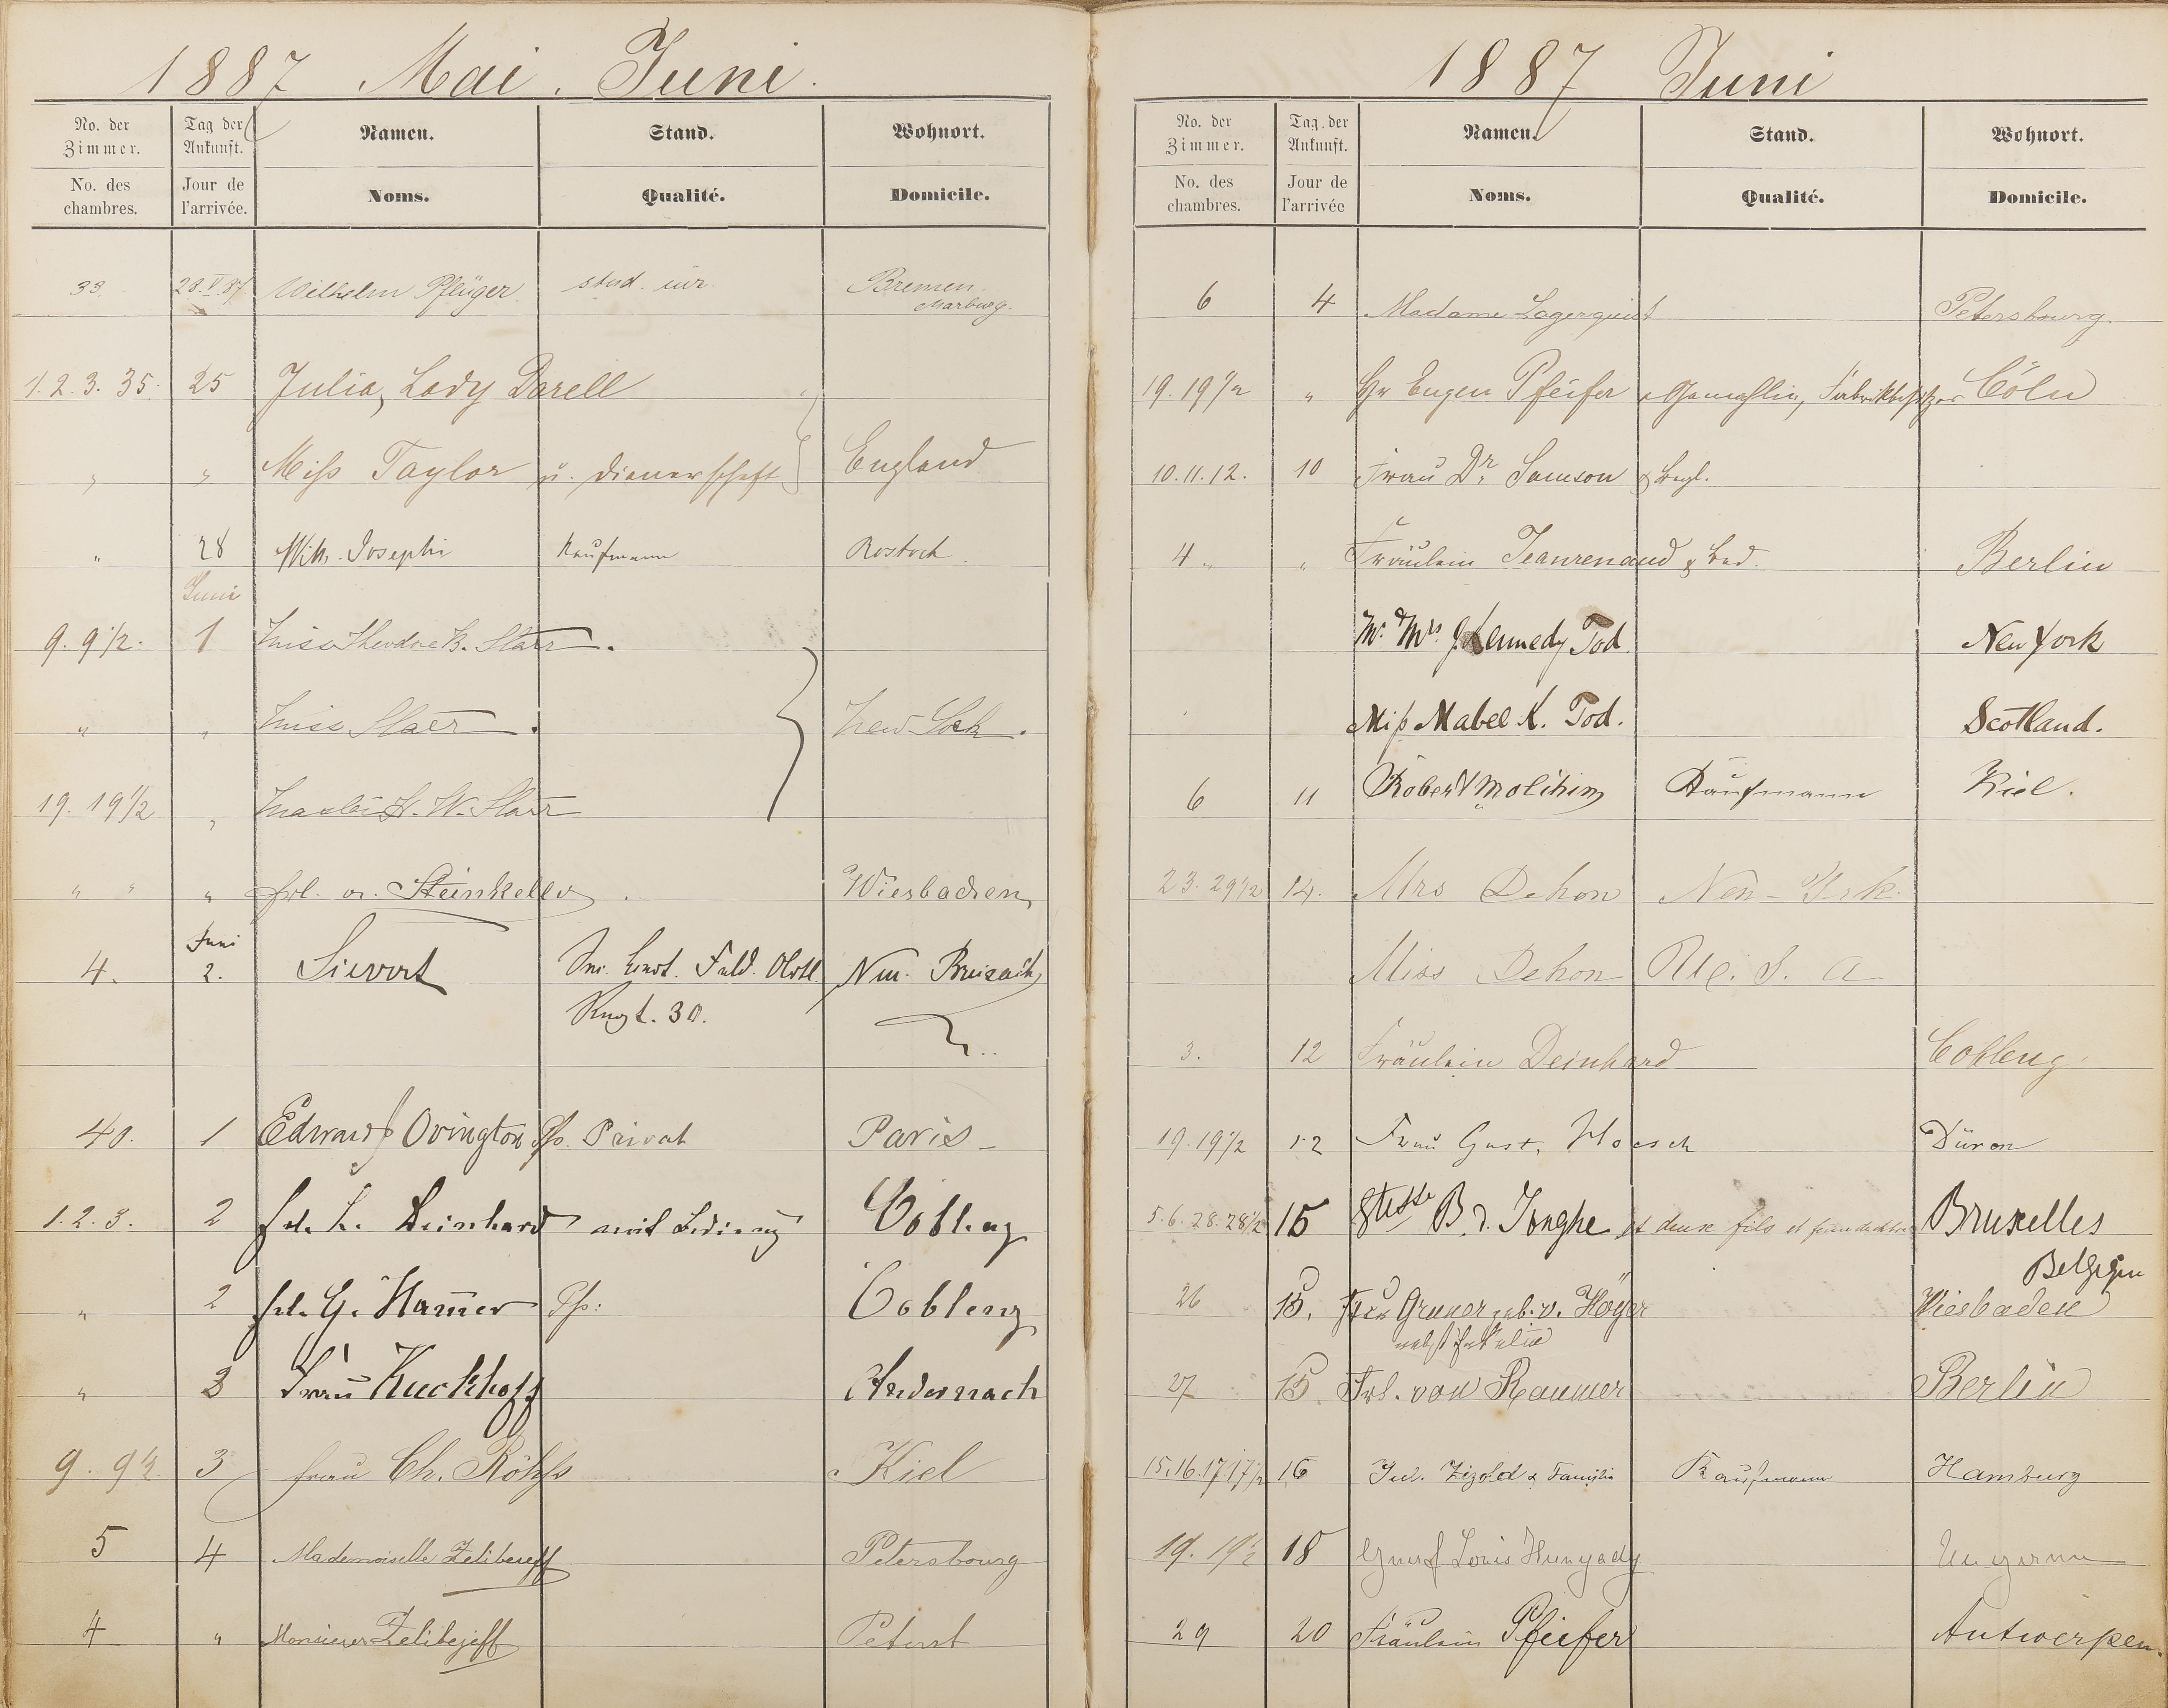 1887 Mai. Juni.
No. der Zimmer. Tag der Ankunft. Namen. Stand. Wohnort.
No. des chambres. Jour de l'arrivée. Noms. Qualité. Domicile.
33. 28.V.87 Wilhelm Pflüger stud. iur. Bremen.
Marburg.
1.2.3.35. 25 Julia, Lady Darell
" " Miſs Taylor u. Dienerschaft England
" 28 Wilh. Josephi Kaufmann Rostock
Juni
9. 9 1/2. 1 Theodore B. Starr.
" " Miss Starr. New York.
19. 19 1/2 " Master H. W. Starr
" " " Frl. v. Steinkeller Wiesbaden
Juni
4. 2. Sievert Feld. Neu-Breisach
Rgt. 30.
40. 1 Edward Ovington Privat Paris
1.2.3. 2 Frl. L. Deinhard mit Coblenz
" 2 Frl. G. Ham̄er Coblenz
" 3 Frau Kuckhoff Andernach
9. 9 1/2. 3 Frau Ch. Kiel
5 4 Mademoiselle Zelibereff Petersbourg
4 " Monsieur Zelibejeff
1887 Juni
No. der Zimmer. Tag der Ankunft. Namen. Stand. Wohnort.
No. des chambres. Jour de l'arrivée Noms. Qualité. Domicile.
6 4 Madame Lagerquist Petersbourg.
19. 19 1/2 " Hr Eugen Pfeifer & Gemahlin, Fabrikbesitzer Cöln
10.11.12. 10 Frau Dr. Samson & Begl.
4 " " Fräulein Jeanrenaud & Bed. Berlin
Mr. & Mrs. J. Kennedy Tod. New York
Miſs Mabel K. Tod. Scotland.
6 11 Robert Kaufmann Kiel.
23. 29 1/2 14. Mrs Dehon New-York.
Miss Dehon U. S. A
3. 12 Fräulein Deinhard Coblenz.
19. 19 1/2 12 Frau Gust. Hoesch Düren
5.6.28.28 1/2 15 Ctesse B. d. Jonghe et deux fils et Bruxelles
Belgien
26 15. Frau Gruner geb. v. Höyer Wiesbaden
nebst
27 15 Frl. von Raumer Berlin
15.16.17.17 1/2 16 Jul. & Familie Kaufmann Hamburg
19. 19 1/2 18 Graf Louis Hunyady Ungarn
29 20 Fräulein Pfeifer Antwerpen.